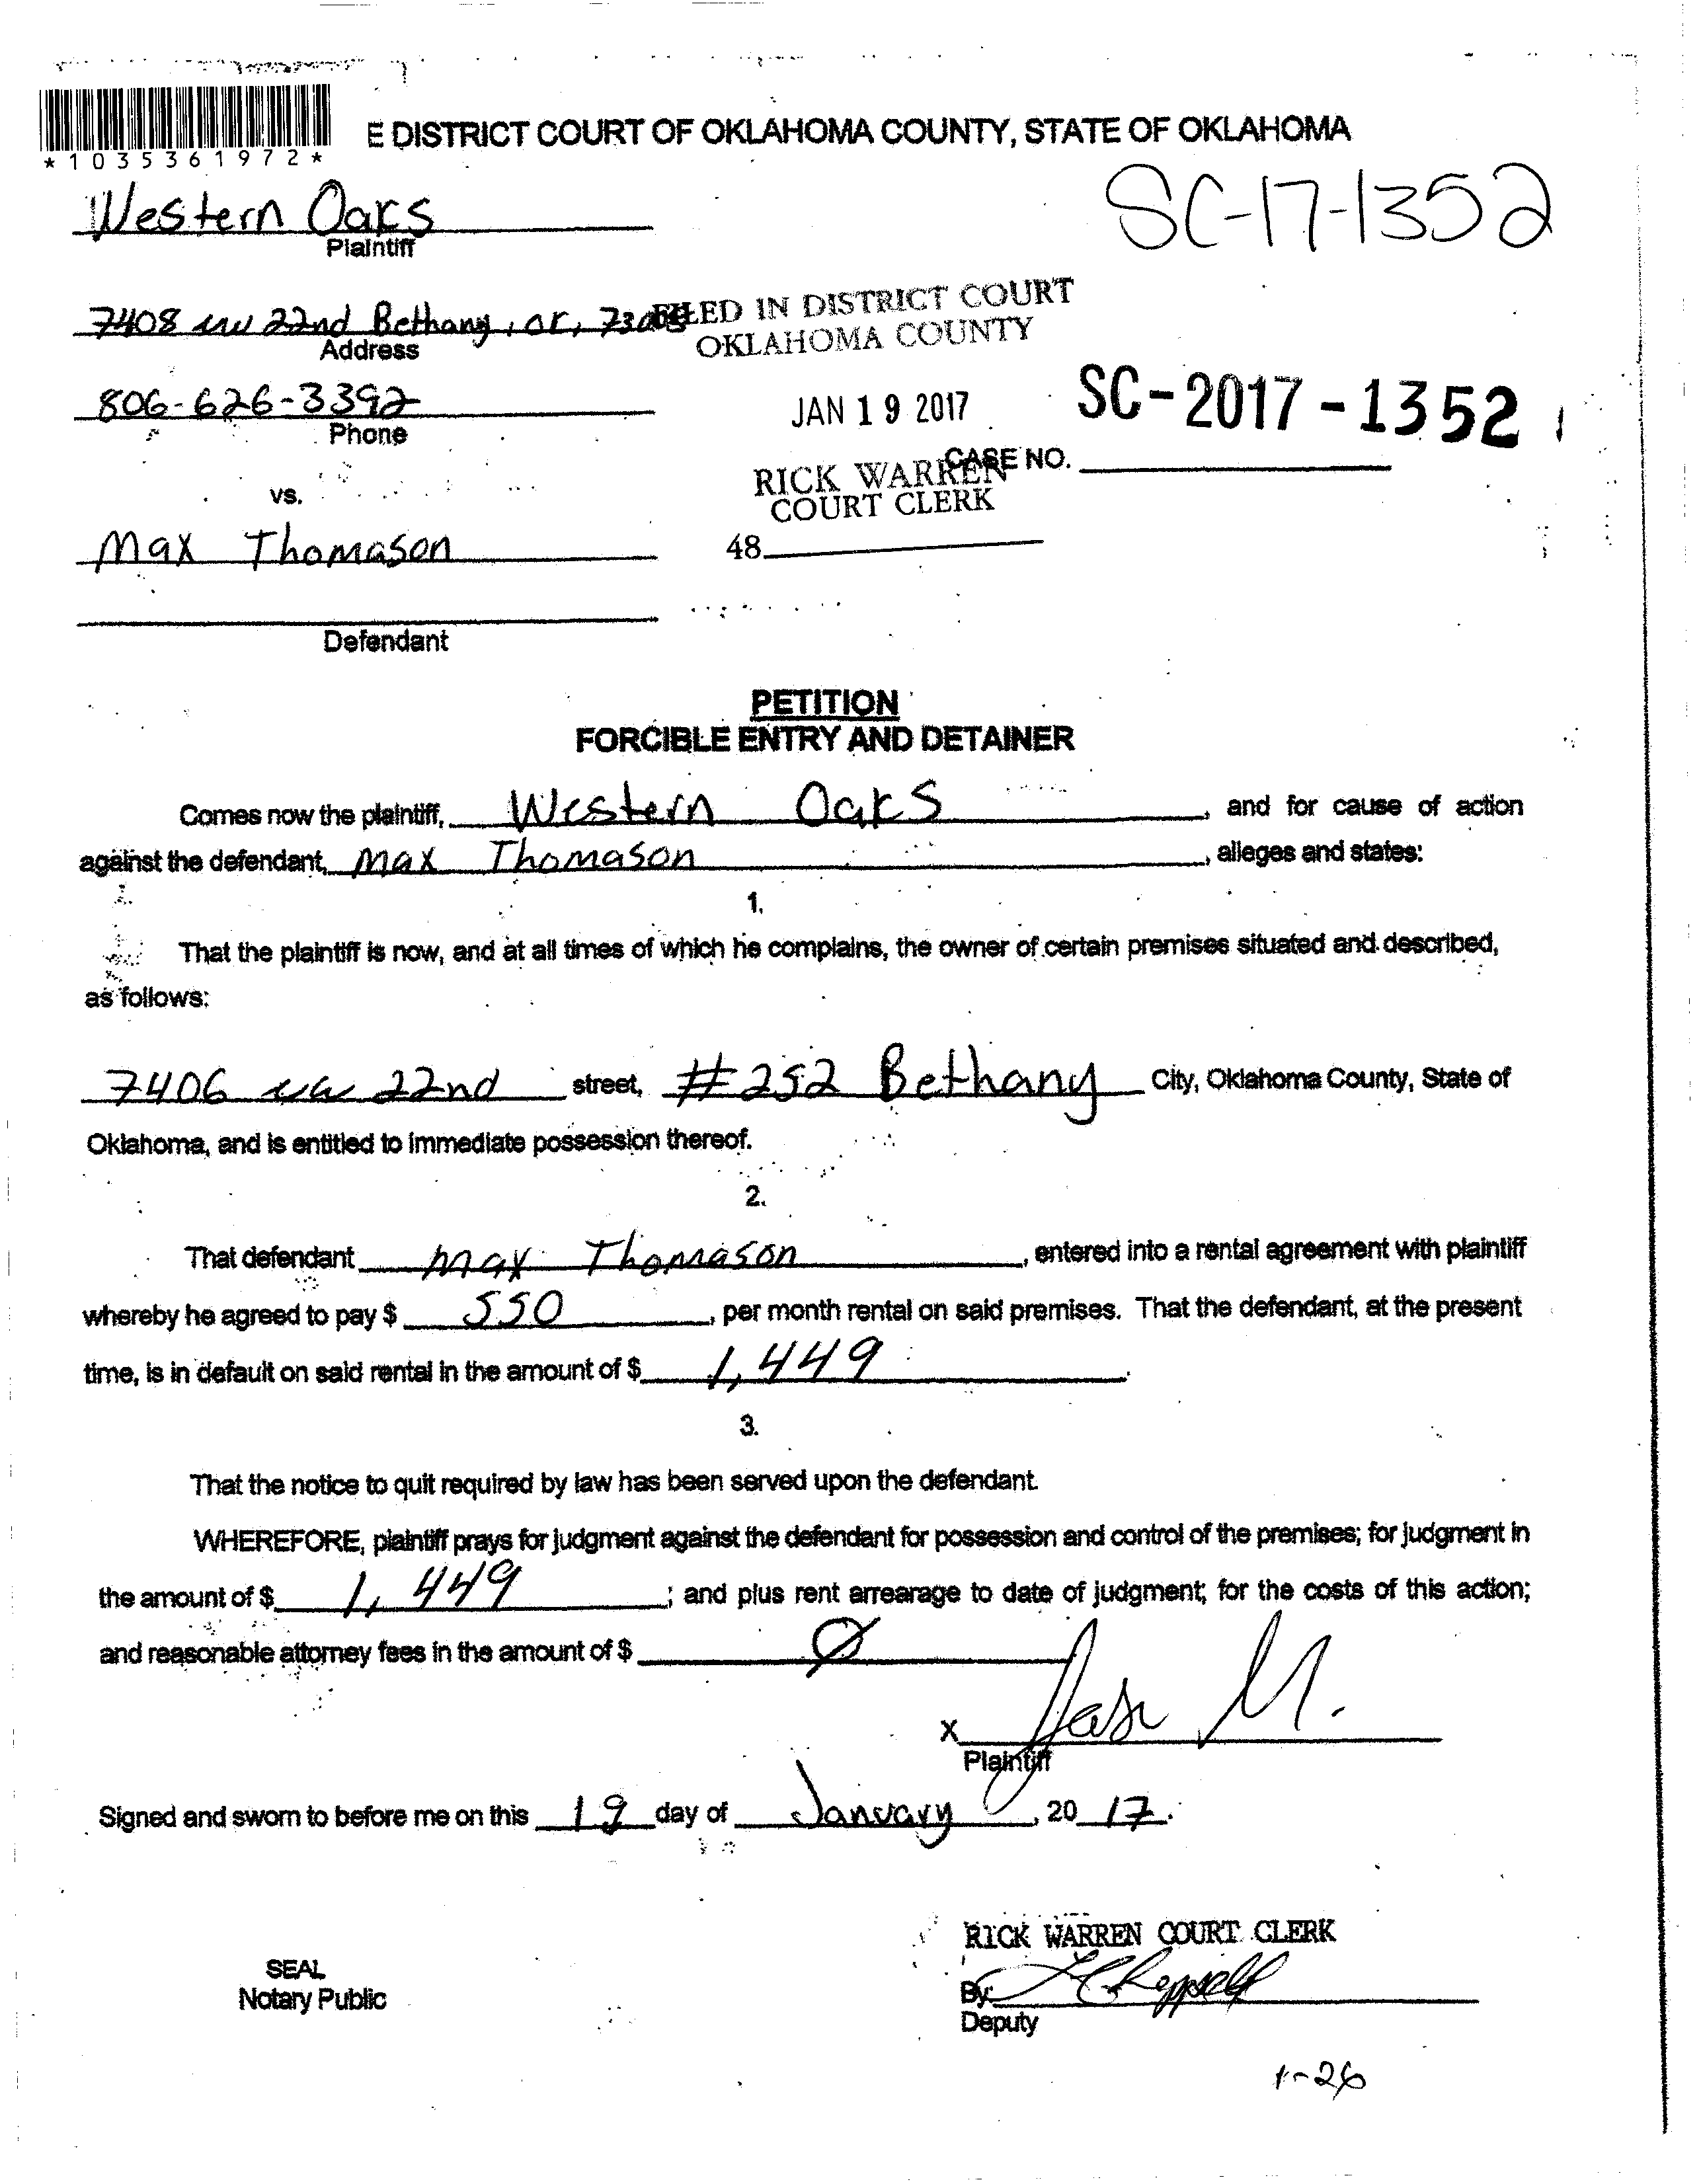 *1035361972*
E DISTRICT COURT OF OKLAHOMA COUNTY, STATE OF OKLAHOMA
Western Oaks
Plaintiff
SC-17-1352
7408 nw 22nd Bethany, OK, 
Address
FILED IN DISTRICT COURT
OKLAHOMA COUNTY
806-626-3392
Phone
JAN 19 2017
SC-2017-1352
CASE NO.
RICK WARREN
COURT CLERK
vs.
Max Thomason
48
Defendant
PETITION
FORCIBLE ENTRY AND DETAINER
Comes now the plaintiff, Western Oaks, and for cause of action
against the defendant, Max Thomason, alleges and states:
1.
That the plaintiff is now, and at all times of which he complains, the owner of certain premises situated and described,
as follows:
7406 nw 22nd street, #252 Bethany City, Oklahoma County, State of
Oklahoma, and is entitled to immediate possession thereof.
2.
That defendant Max Thomason, entered into a rental agreement with plaintiff
whereby he agreed to pay $ 550, per month rental on said premises. That the defendant, at the present
time, is in default on said rental in the amount of $ 1,449.
3.
That the notice to quit required by law has been served upon the defendant.
WHEREFORE, plaintiff prays for judgment against the defendant for possession and control of the premises; for judgment in
the amount of $ 1,449; and plus rent arrearage to date of judgment; for the costs of this action;
and reasonable attorney fees in the amount of $ Ø
X
Plaintiff
Signed and sworn to before me on this 19 day of January, 20 17.
RICK WARREN COURT CLERK
SEAL
Notary Public
By:
Deputy
1-26